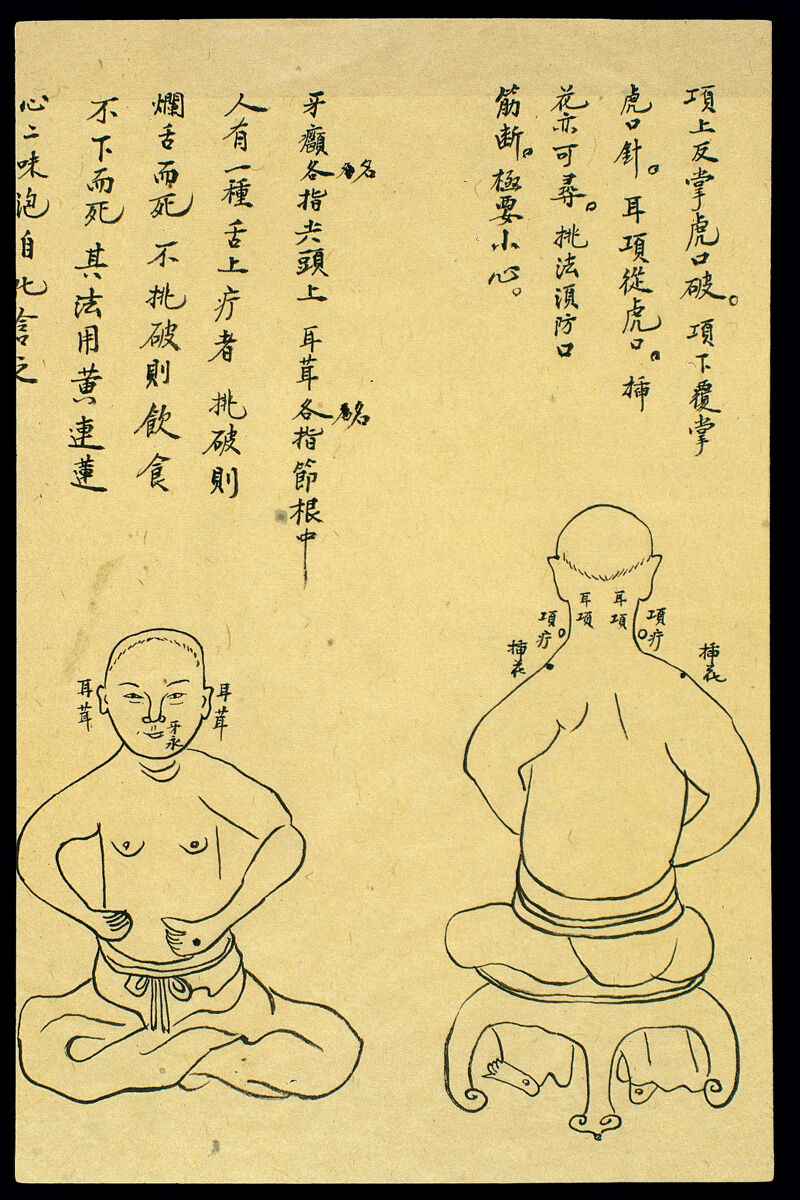 項上反掌虎口破。項下覆掌
虎口針。耳項從虎口。揷
花亦可尋。挑法須防口
筋断。極要小心。
牙癰各指尖頭上 耳茸各指節根中
名
名
人有一種舌上疔者 挑破則
爛舌而死 不挑破則飲食
不下而死 其法用黄連蓮
心二味泡自化含之
耳項
耳項
項疔
項疔
揷花
揷花
耳茸
耳茸
牙永